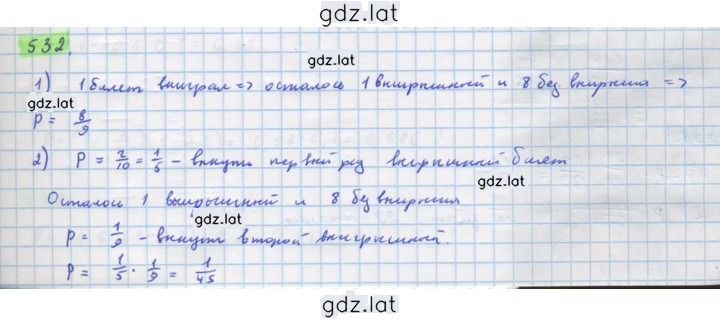 gdz.lat
532.
1) 1 билет выиграл => осталось 1 выигрышной и 8 без выигрыша =>
gdz.lat
P = 8/9
gdz.lat
2) P = 2/10 = 1/5 - вынуть первый раз выигрышный билет
gdz.lat
Осталось 1 выигрышной и 8 без выигрыша
gdz.lat
P = 1/9 - вынут второй выигрышной.
P = 1/5 · 1/9 = 1/45
gdz.lat
gdz.lat